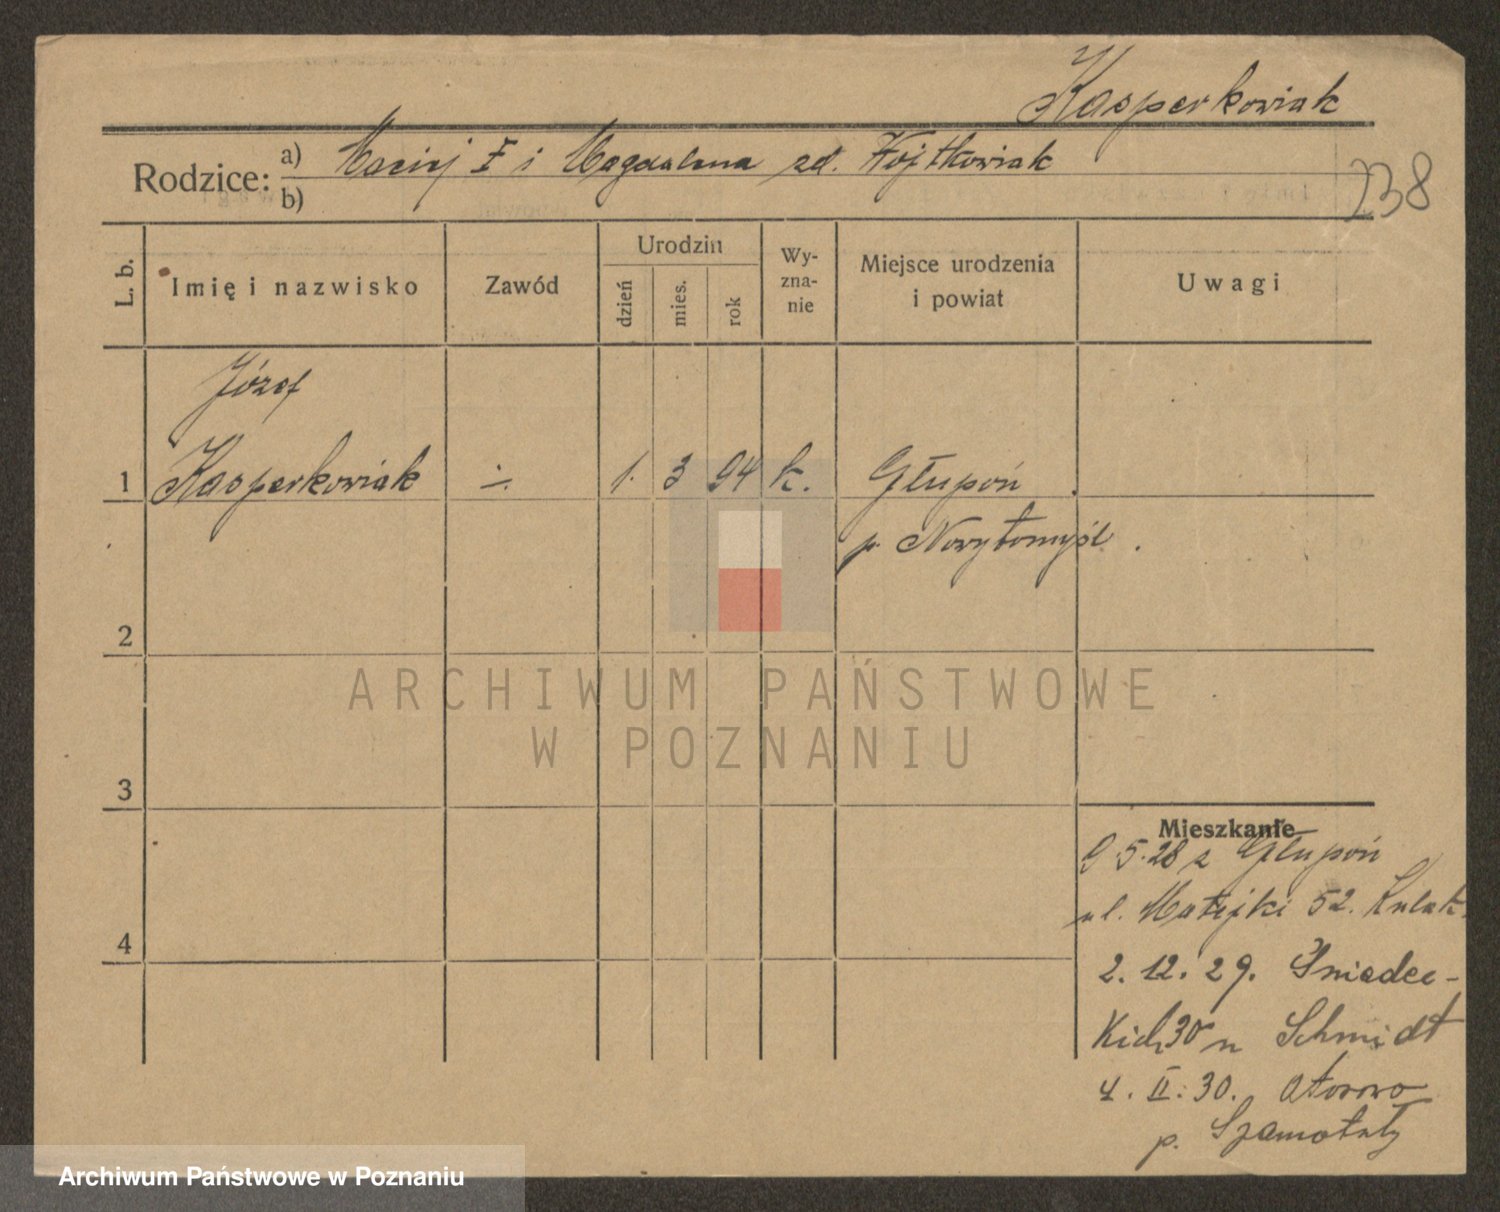 Kasperkowiak
Rodzice: a) Maciej I i Magdalena zd. Wojtkowiak
b)
238
L. b.
Imię i nazwisko
Zawód
Urodzin
dzień
mies.
rok
Wy-
zna-
nie
Miejsce urodzenia
i powiat
Uwagi
Józef
1 Kasperkowiak ÷ 1. 3 94 k. Głupoń
p. Nowytomyśl.
2
3
4
Mieszkanie
9.5.28 z Głupoń
ul. Matejki 52. Kulak
2.12.29. Śniadec-
kich 30 u Schmidt
4. II. 30. Otorowo
p. Szamotuły
ARCHIWUM PAŃSTWOWE
W POZNANIU
Archiwum Państwowe w Poznaniu